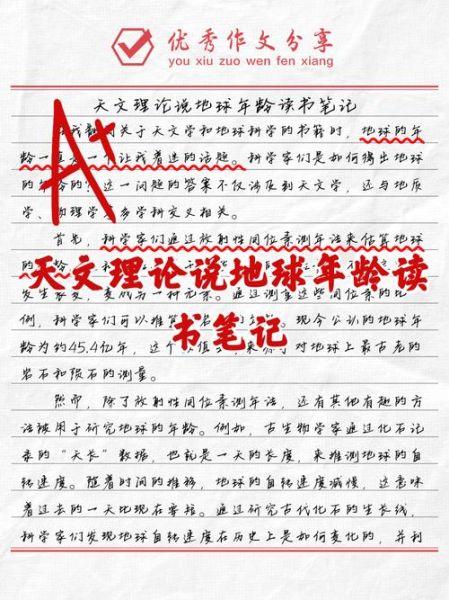 优秀作文分享
you xiu zuo wen fen xiang
天文理论说地球年龄读书笔记
关于天文学和地球科学的书籍时，地球的年
龄一直是一个让我着迷的话题。科学家们是如何得出地球
的年龄的？这一问题的答案不仅涉及到天文学，还与地质
学、物理学等多学科交叉相关。
首先，科学家们通过放射性同位素测年法来估算地球
天文理论说地球年龄读
发生衰变，变成另一种元素。通过测量这些同位素的比
书笔记
例，科学家们可以推算 现今公认的地球年
龄为约45.4亿年，这个 对地球上最古老的
岩石和陨石的测量。
然而，除了放射性同位素测年法，还有其他有趣的方
法被用于研究地球的年龄。例如，古生物学家通过化石记
录的“天长”数据，也就是一天的长度，来推测地球的自
转速度。随着时间的推移，地球的自转速度减慢，这意味
着过去的一天比现在要短。通过研究古代化石的生长线，
科学家们发现地球自转速度在历史上是如何变化的，并利